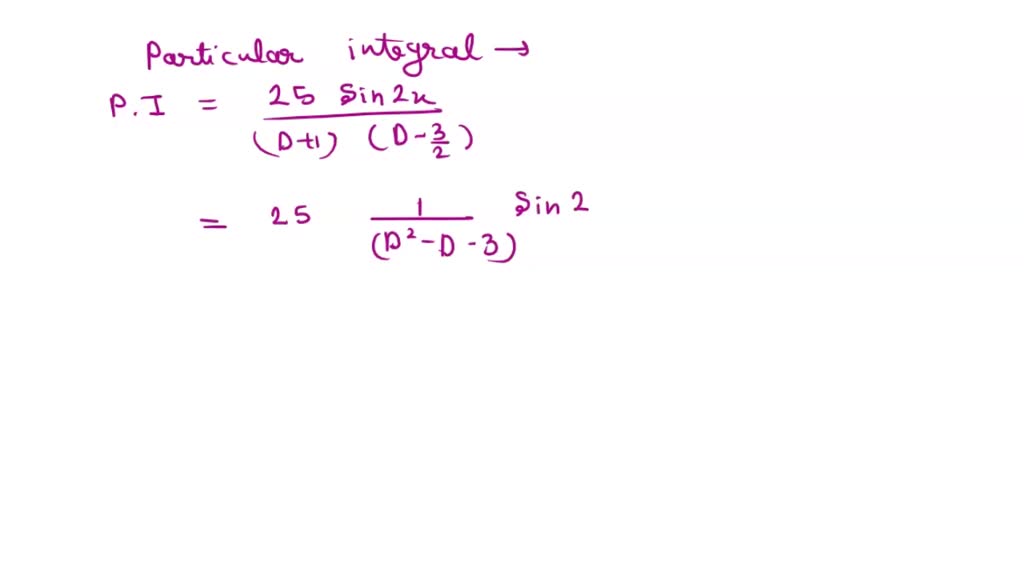 Particular integral →
P.I = 25 Sin2x / (D+1) (D-3/2)
= 25 1/(D²-D-3) Sin 2